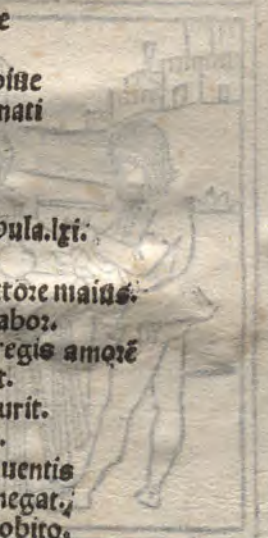 e
oiue
nati
bula.lxi.
ctore maius.
abor.
regis amorē
t.
urit.
.
uentis
negat.
obito.